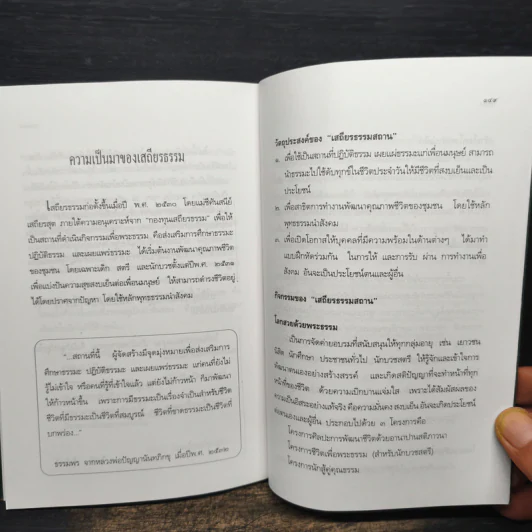 ความเป็นมาของเสถียรธรรม
เสถียรธรรมก่อตั้งขึ้นเมื่อปี พ.ศ. ๒๕๓๐ โดยแม่ชีศันสนีย์
เสถียรสุต ภายใต้ความอนุเคราะห์จาก “กองทุนเสถียรธรรม” เพื่อให้
เป็นสถานที่ดำเนินกิจกรรมเพื่อพระธรรม คือส่งเสริมการศึกษาธรรมะ
ปฏิบัติธรรม และเผยแพร่ธรรมะ ได้เริ่มต้นงานพัฒนาคุณภาพชีวิต
ของชุมชน โดยเฉพาะเด็ก สตรี และนักบวชตั้งแต่ปีพ.ศ. ๒๕๓๑
เพื่อแบ่งปันความสุขสงบเย็นต่อเพื่อนมนุษย์ ให้สามารถดำรงชีวิตอยู่
ได้โดยปราศจากปัญหา โดยใช้หลักพุทธธรรมนำสังคม
“...สถานที่นี้ ผู้จัดสร้างมีจุดมุ่งหมายเพื่อส่งเสริมการ
ศึกษาธรรมะ ปฏิบัติธรรมะ และเผยแพร่ธรรมะ แก่คนที่ยังไม่
รู้ไม่เข้าใจ หรือคนที่รู้ที่เข้าใจแล้ว แต่ยังไม่ก้าวหน้า ก็มาพัฒนา
ให้ก้าวหน้าขึ้น เพราะการมีธรรมะเป็นเรื่องจำเป็นสำหรับชีวิต
ชีวิตที่มีธรรมะเป็นชีวิตที่สมบูรณ์ ชีวิตที่ขาดธรรมะเป็นชีวิตที่
บกพร่อง...”
ธรรมพร จากหลวงพ่อปัญญานันทภิกขุ เมื่อปีพ.ศ. ๒๕๓๒
๑๔๙
วัตถุประสงค์ของ “เสถียรธรรมสถาน”
๑. เพื่อใช้เป็นสถานที่ปฏิบัติธรรม เผยแผ่ธรรมะแก่เพื่อนมนุษย์ สามารถ
นำธรรมะไปใช้ดับทุกข์ในชีวิตประจำวันให้มีชีวิตที่สงบเย็นและเป็น
ประโยชน์
๒. เพื่อสาธิตการทำงานพัฒนาคุณภาพชีวิตของชุมชน โดยใช้หลัก
พุทธธรรมนำสังคม
๓. เพื่อเปิดโอกาสให้บุคคลที่มีความพร้อมในด้านต่างๆ ได้มาทำ
แบบฝึกหัดร่วมกัน ในการให้ และการรับ ผ่าน การทำงานเพื่อ
สังคม อันจะเป็นประโยชน์ตนและผู้อื่น
กิจกรรมของ “เสถียรธรรมสถาน”
โลกสวยด้วยพระธรรม
เป็นการจัดค่ายอบรมที่สนับสนุนให้ทุกกลุ่มอายุ เช่น เยาวชน
นิสิต นักศึกษา ประชาชนทั่วไป นักบวชสตรี ให้รู้จักและเข้าใจการ
พัฒนาตนเองอย่างสร้างสรรค์ และเกิดสติปัญญาที่จะทำหน้าที่ทุก
หน้าที่ของชีวิต ด้วยความเบิกบานแจ่มใส เพราะได้สัมผัสผลของ
ความเป็นอิสระอย่างแท้จริง คือความมั่นคง สงบเย็น อันจะเกิดประโยชน์
ต่อตนเองและผู้อื่น ประกอบไปด้วย ๓ โครงการคือ
โครงการศิลปะการพัฒนาชีวิตด้วยอานาปานสติภาวนา
โครงการชีวิตเพื่อพระธรรม (สำหรับนักบวชสตรี)
โครงการนักสู้คู่คุณธรรม